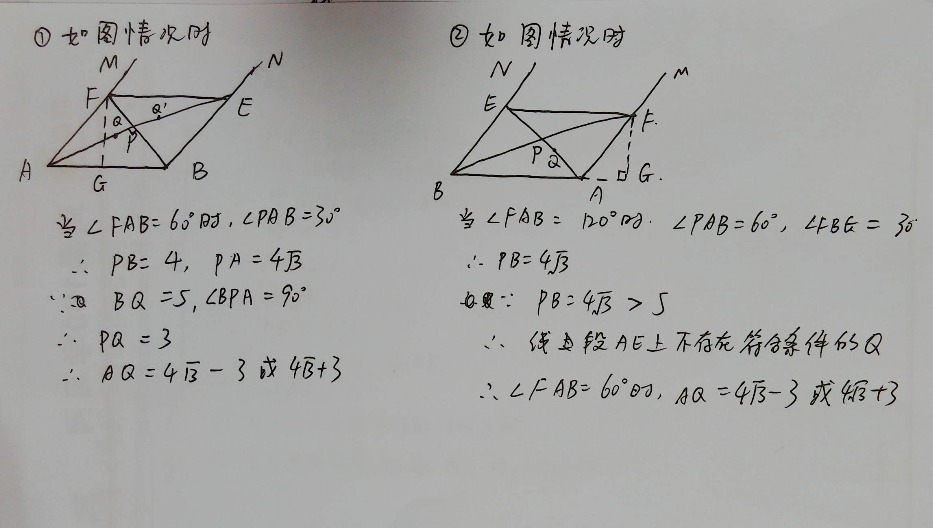 ① 如图情况时
M
N
F
E
Q
Q'
P
A
G
B
当∠FAB=60°时,∠PAB=30°
∴ PB=4, PA=4√3
∵ BQ=5,∠BPA=90°
∴ PQ=3
∴ AQ=4√3-3或4√3+3
② 如图情况时
N
M
E
F.
P
Q
B
A
G.
当∠FAB=120°时. ∠PAB=60°, ∠FBE=30°
∴ PB=4√3
∵ PB=4√3>5
∴ 线段AE上不存在符合条件的Q
∴∠FAB=60°时, AQ=4√3-3或4√3+3